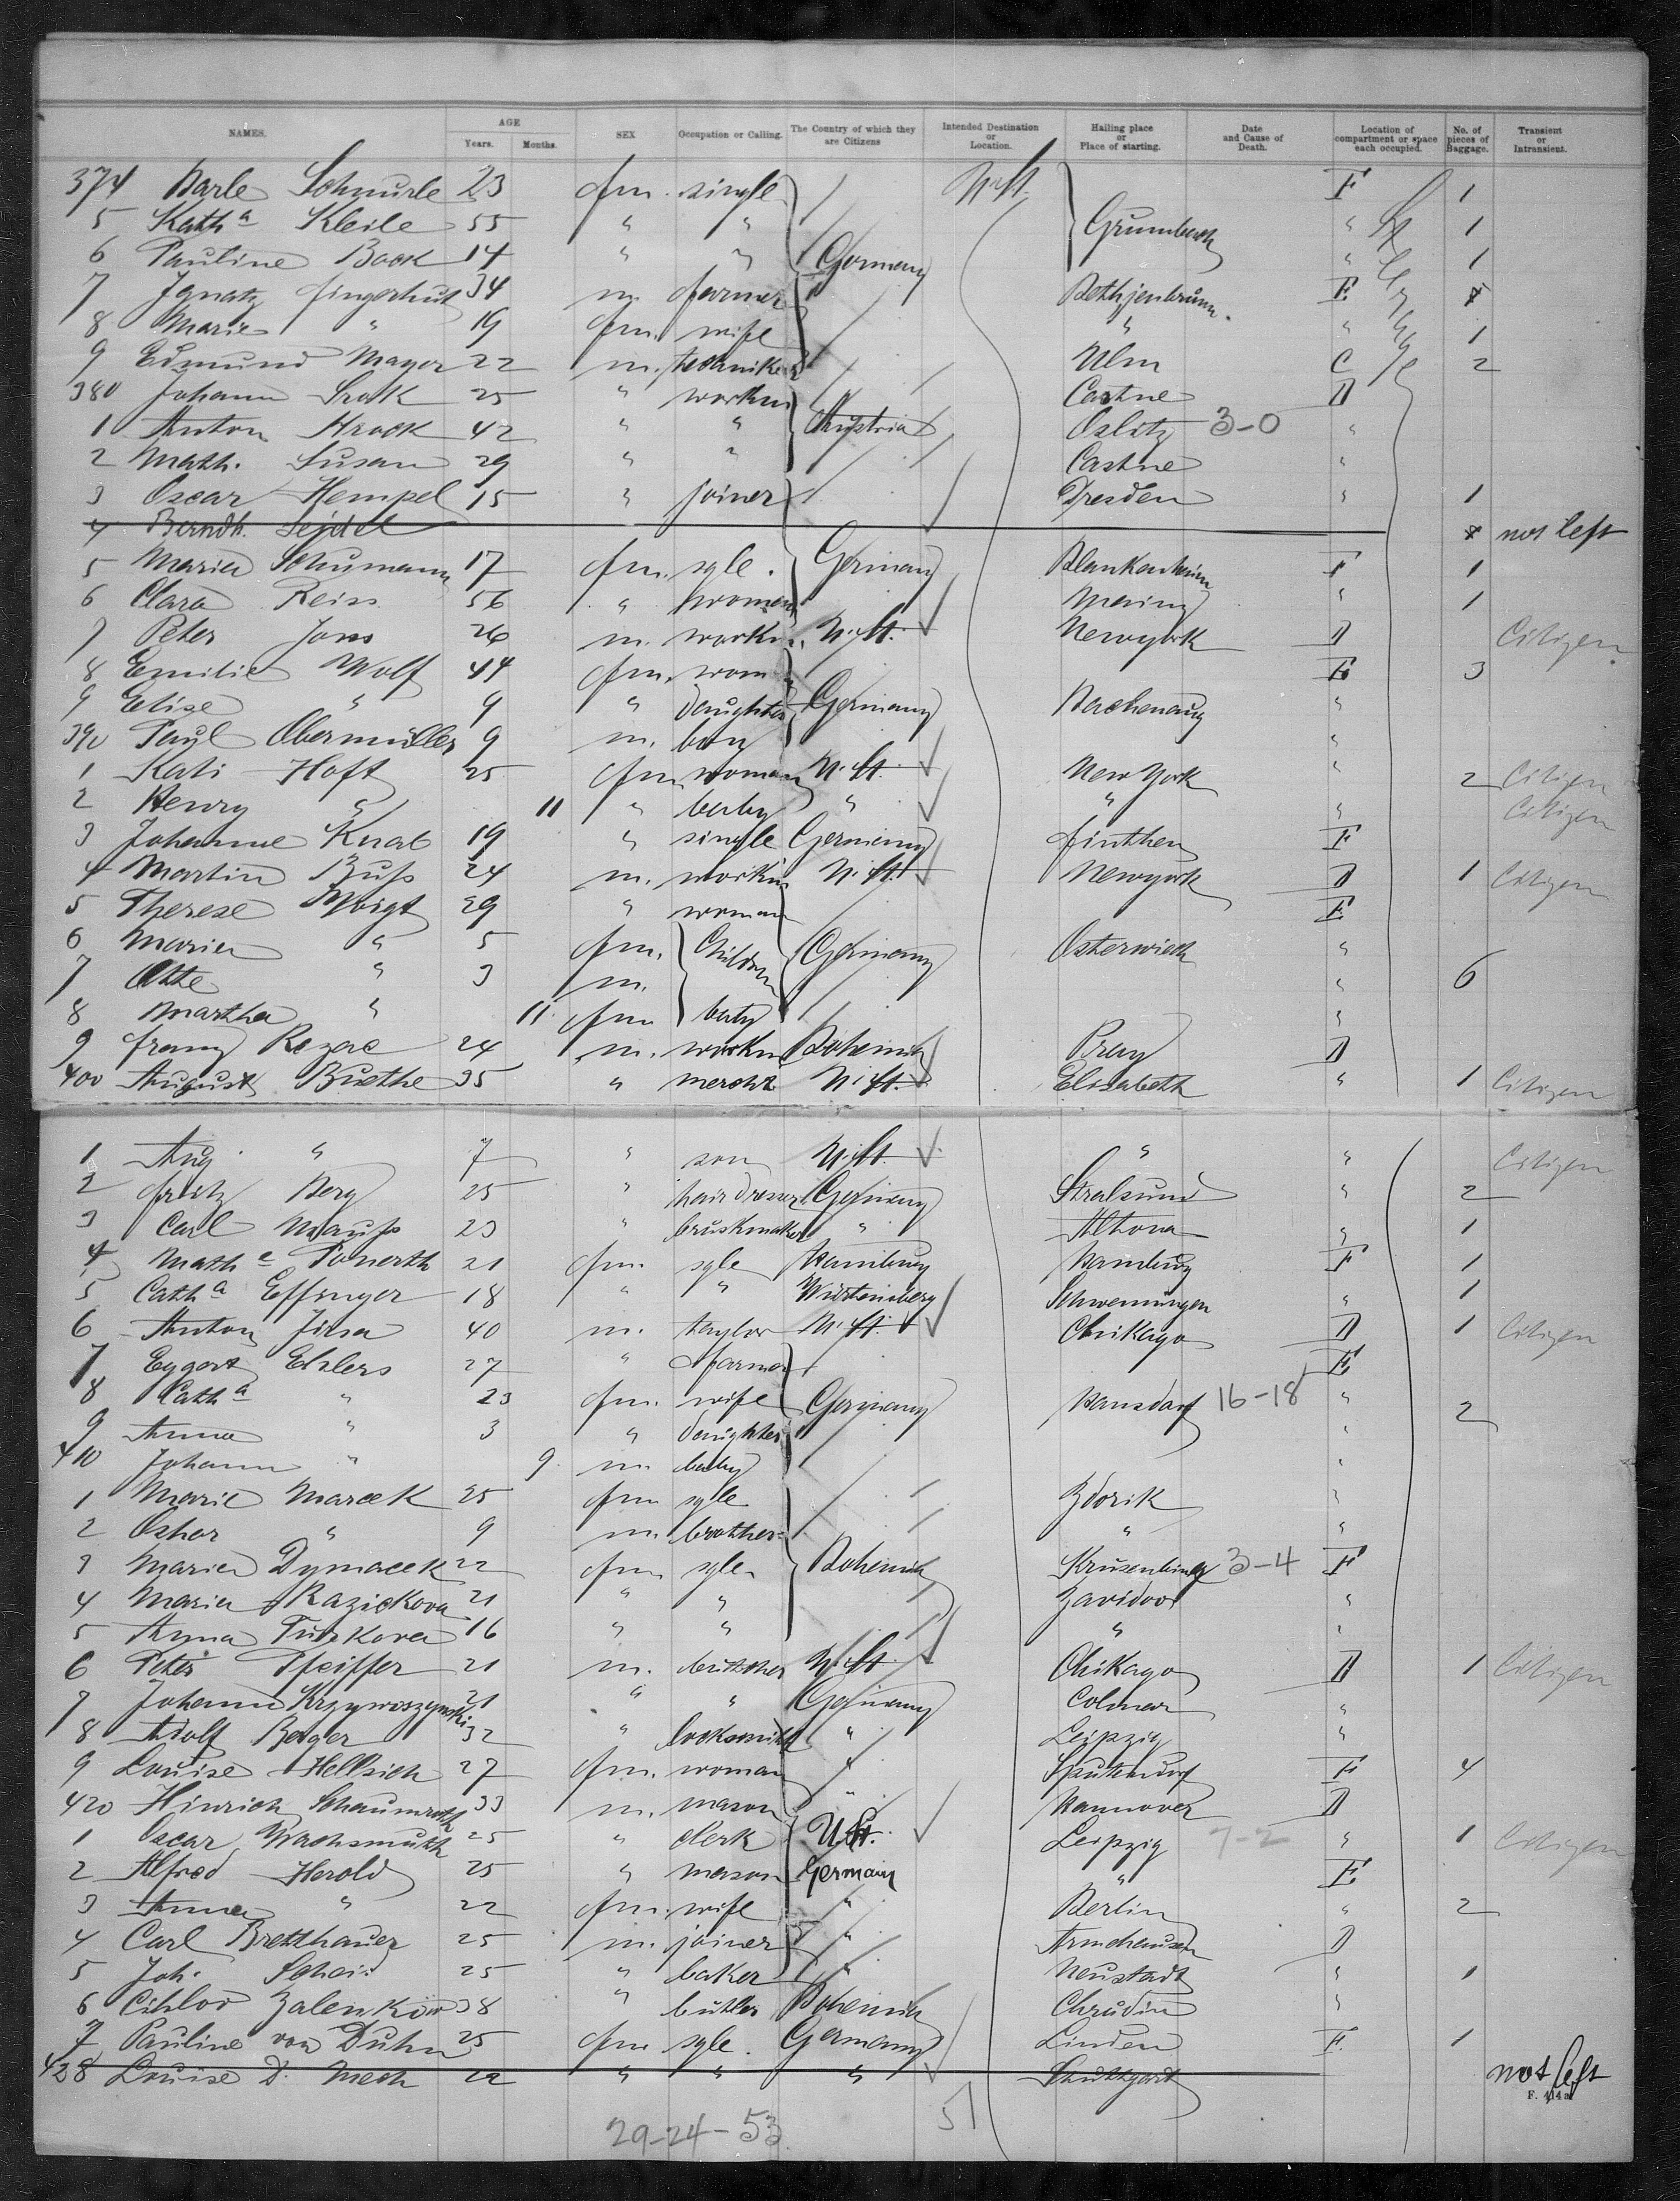 NAMES. AGE Years. Months. SEX Occupation or Calling. The Country of which they are Citizens Intended Destination or Location. Hailing place or Place of starting. Date and Cause of Death. Location of compartment or space each occupied. No. of pieces of Baggage. Transient or Intransient.
374 Schnürle 23 fm. single E 1
5 Kath a Kleile 55 " " Grumbach " 1
6 Pauline Book 14 " " Germany " 1
7 Ignatz Fingerhut 34 m. farmer E
8 Marie " 19 fm. wife " " 1
9 Edmund Mayer 22 m. Ulm C 2
380 Johann Srok 25 " workm Castne D
1 Anton Hrock 42 " " Austria Oslitz 3-0 "
2 Math. Susan 29 " " Castne "
3 Oscar Hempel 15 " joiner Dresden " 1
4 Berndh. Seidel not left
5 Marie Schumann 17 fm. sgle. Germany Blankenheim F 1
6 Clara Reiss 56 " woman " 1
7 Peter Jons 26 m. workm. U. St. Newyork D Citizen
8 Emilie Wolf 44 fm. wom E 3
9 Elise " 9 " daughter Germany "
390 Paul Obermüller 9 m. boy "
1 Kati Hoft 25 fm woman U. St. New York " 2 Citizen
2 Henry " 11 " baby " " " Citizen
3 Johanne Knab 19 " single Germany Finthen F
4 Martin Buss 24 m. workm U. St. Newyork D 1 Citizen
5 Therese Voigt 29 " woman E
6 Marie " 5 fm. Children Germany Osterwieck "
7 Otto " 3 m. " 6
8 Martha " 11. fm baby "
9 Franz Rezac 24 m. workm Bohemia Prag D
400 August Buethe 35 " mercht U. St. Elisabeth " 1 Citizen
1 Aug. " 7 " son U. St. " " Citizen
2 Fritz Berg 25 " hairdresser Germany Stralsund " 2
3 Carl Mauss 23 " bruskmaker " Altona " 1
4 Math e Ponerth 21 fm. sgle Hamburg Hamburg F 1
5 Cath a Effinger 18 " " Würtemberg Schwenningen " 1
6 Anton Jirsa 40 m. taylor U. St. Chikago D 1 Citizen
7 Eggert Ehlers 27 " farmer E
8 Cath a " 23 fm. wife Germany Hansdorf 16-18 "
9 Anna " 3 " daughter " 2
410 Johann " 9. m. baby "
1 Marie Marcek 25 fm sgle Zdorik "
2 Oskar " 9 m. brother " "
3 Marie Dymacek 22 fm sgle Bohemia 3-4 F
4 Marie Razickova 21 " " Zavidov "
5 Anna Turkova 16 " " " "
6 Peter Pfeiffer 21 m. butcher U. St. Chikago D 1 Citizen
7 Johann Krzywoszynski 21 " " Germany Colmar "
8 Adolf Berger 32 " locksmith " Leipzig "
9 Louise Hellrich 27 fm. woman " E 4
420 Hinrich Schaumroth 33 m. mason " Hannover D
1 Oscar Wachsmuth 25 " clerk U. St. Leipzig 7-2 " 1 Citizen
2 Alfred Herold 25 " mason Germany " E
3 Anna " 22 fm. wife " Berlin " 2
4 Carl Bretthauer 25 m. joiner " D
5 Joh. 25 " baker " Neustadt " 1
6 Cihlov Zalenkow 38 " butler Bohemia Chrudin "
7 Pauline von Duhn 25 fm sgle. Germany Linden F. 1
428 Louise D. Mech 22 " " " Stuttgart not left
29-24-53 51